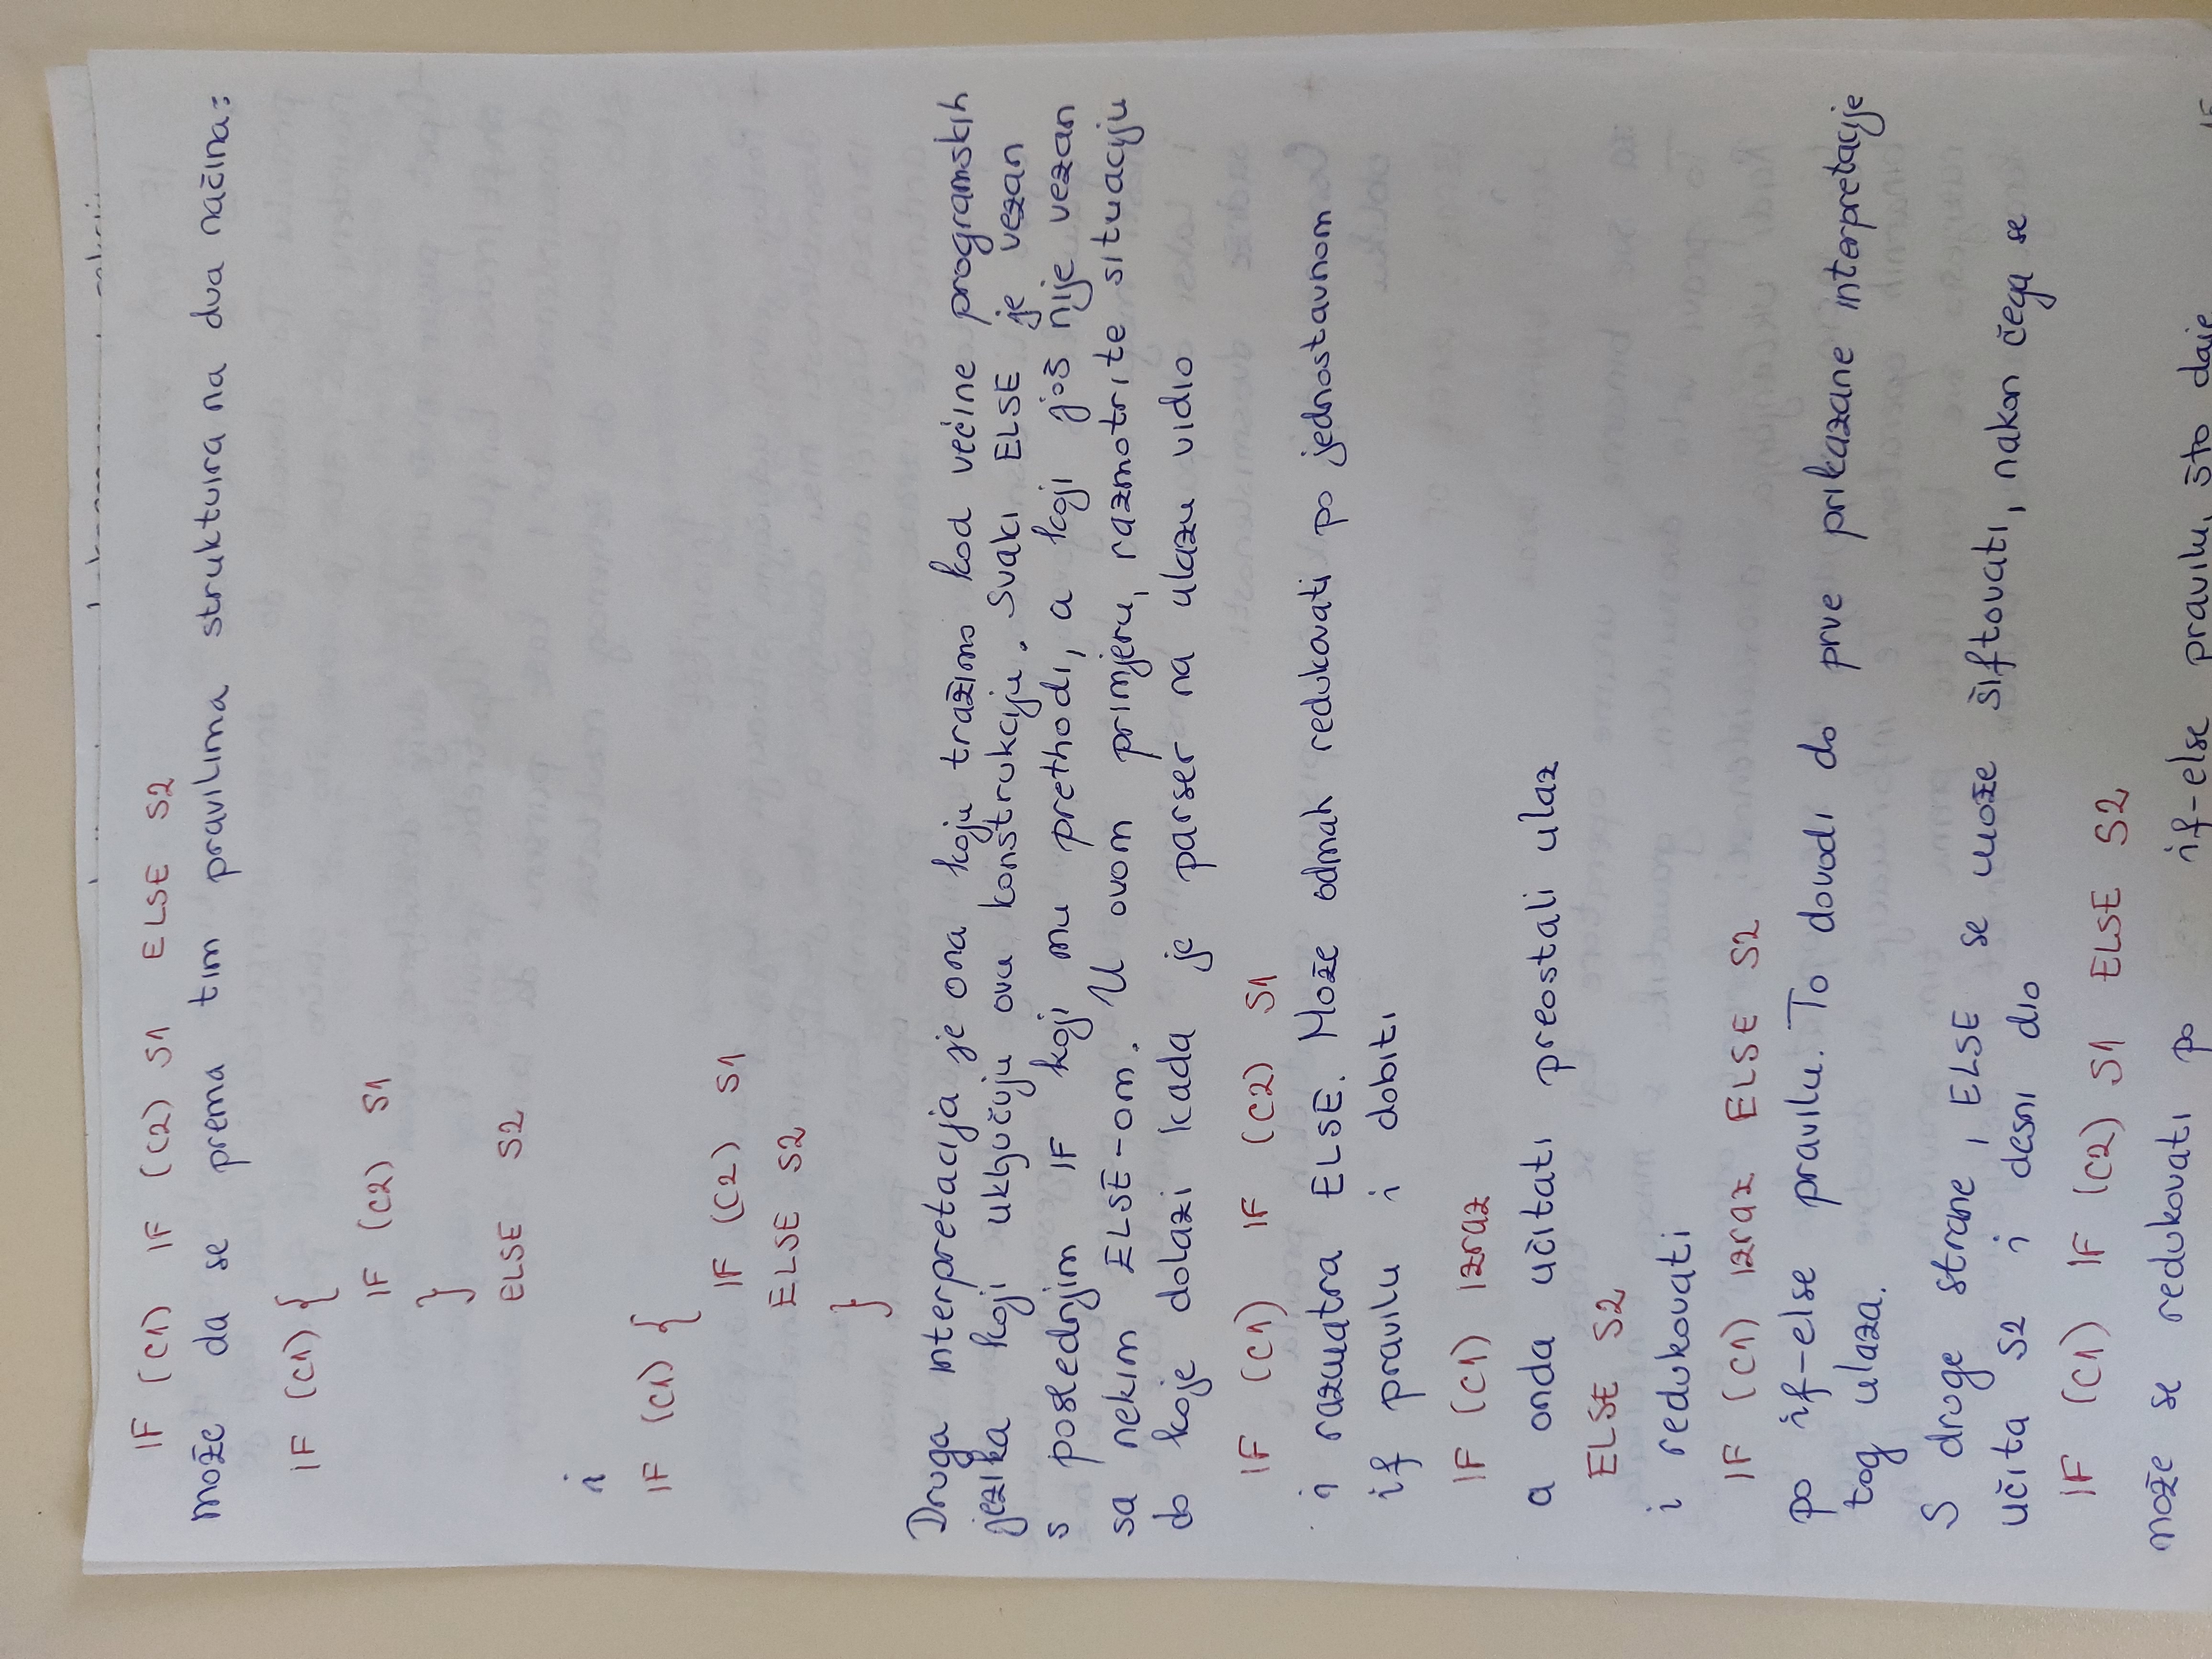 IF (C1) IF (C2) S1 ELSE S2
može da se prema tim pravilima struktuira na dva načina:
IF (C1) {
IF (C2) S1
}
ELSE S2
i
IF (C1) {
IF (C2) S1
ELSE S2
}
Druga interpretacija je ona koju tražimo kod većine programskih
jezika koji uključuju ovu konstrukciju. Svaki ELSE je vezan
s posljednjim IF koji mu prethodi, a koji još nije vezan
sa nekim ELSE-om. U ovom primjeru, razmotrite situaciju
do koje dolazi kada je parser na ulazu vidio
IF (C1) IF (C2) S1
i razmatra ELSE. Može odmah redukovati po jednostavnom
if pravilu i dobiti
IF (C1) izraz
a onda učitati preostali ulaz
ELSE S2
i redukovati
IF (C1) izraz ELSE S2
po if-else pravilu. To dovodi do prve prikazane interpretacije
tog ulaza.
S druge strane, ELSE se može šiftovati, nakon čega se
učita S2 i desni dio
IF (C1) IF (C2) S1 ELSE S2
može se redukovati po if-else pravilu, što daje